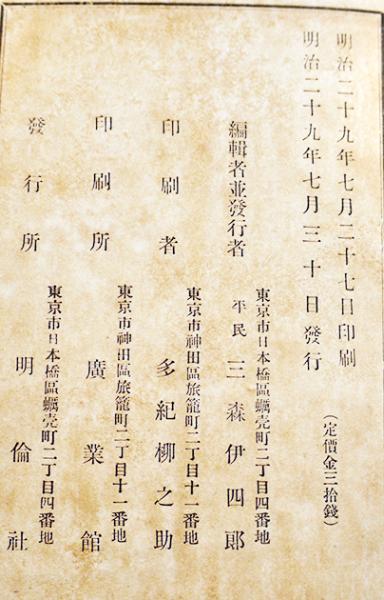 明治二十九年七月二十七日印刷
明治二十九年七月三十日發行
（定價金三拾錢）
東京市日本橋區蠣壳町二丁目四番地
編輯者並發行者 平民 三森伊四郎
東京市神田區旅籠町二丁目十一番地
印刷者 多紀柳之助
東京市神田區旅籠町二丁目十一番地
印刷所 廣業館
東京市日本橋區蠣壳町二丁目四番地
發行所 明倫社